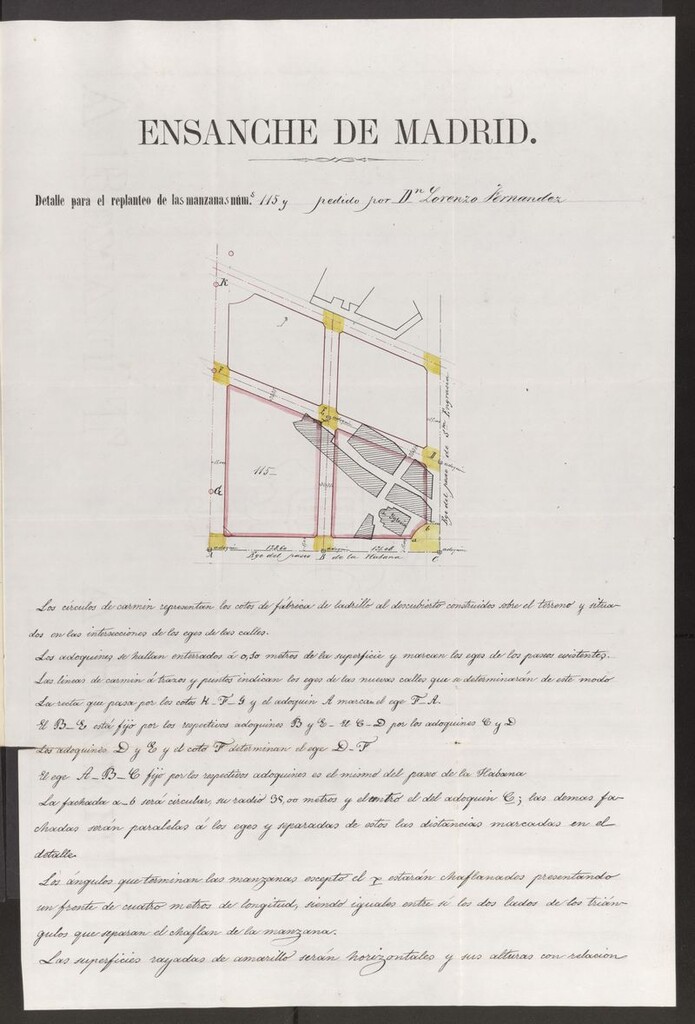 ENSANCHE DE MADRID.
Detalle para el replanteo de las manzanas núm.s 115 y pedido por Dn Lorenzo Fernandez
K
F
E
D
115
G
b
a
A
B
C
Ege del paseo de Sta Engracia
Ege del paseo de la Habana
Los círculos de carmin representan los cotos de fábrica de ladrillo al descubierto construidos sobre el terreno y situa-
dos en las intersecciones de los eges de las calles.
Los adoquines se hallan enterrados á 0,30 metros de la superficie y marcan los eges de los paseos existentes.
Las líneas de carmin á trazos y puntos indican los eges de las nuevas calles que se determinarán de este modo
La recta que pasa por los cotos K-F-G y el adoquin A marca el ege F-A.
El B-E está fijo por los respectivos adoquines B y E - El C-D por los adoquines C y D
Los adoquines D y E y el coto F determinan el ege D-F
El ege A-B-C fijo por los respectivos adoquines es el mismo del paseo de la Habana
La fachada a-b será circular, su radio 38,00 metros y el centro el del adoquin C; las demas fa-
chadas serán paralelas á los eges y separadas de estos las distancias marcadas en el
detalle.
Los ángulos que terminan las manzanas escepto el r estarán chaflanados presentando
un frente de cuatro metros de longitud, siendo iguales entre sí los dos lados de los trián-
gulos que separan el chaflan de la manzana.
Las superficies rayadas de amarillo serán horizontales y sus alturas con relacion